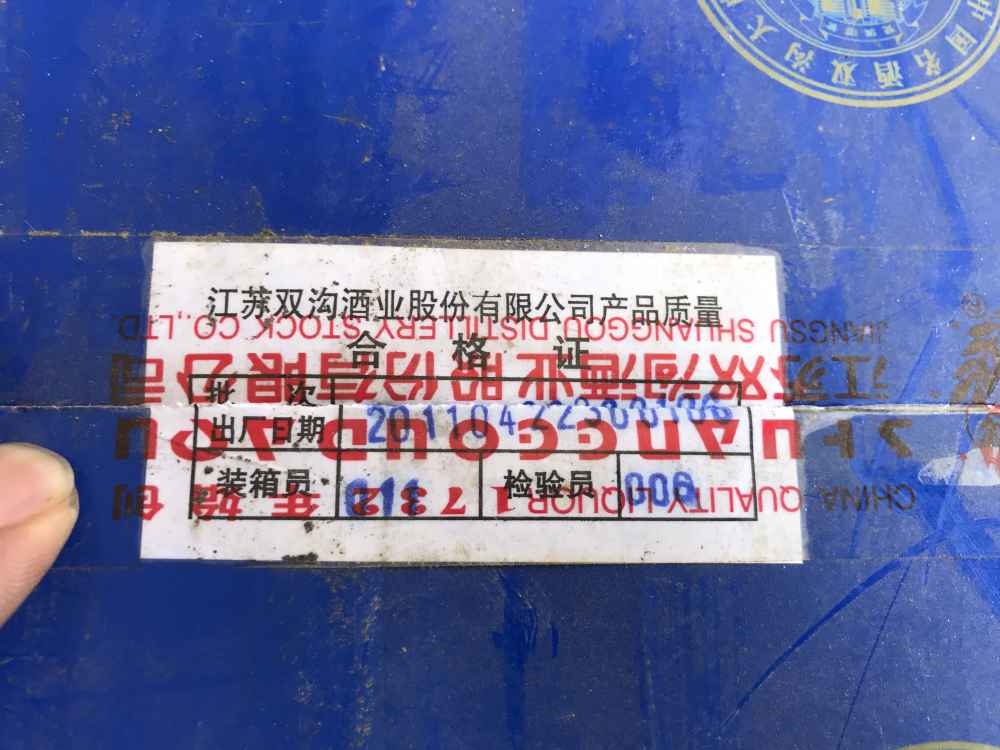 中国名酒双沟大
江苏双沟酒业股份有限公司产品质量
合格证
批次
出厂日期
装箱员 011 检验员 006
JIANGSU SHUANGGOU DISTILLERY STOCK CO.,LTD.
江苏双沟酒业股份有限公司
CHINA QUALITY LIQUOR 1732 年始创